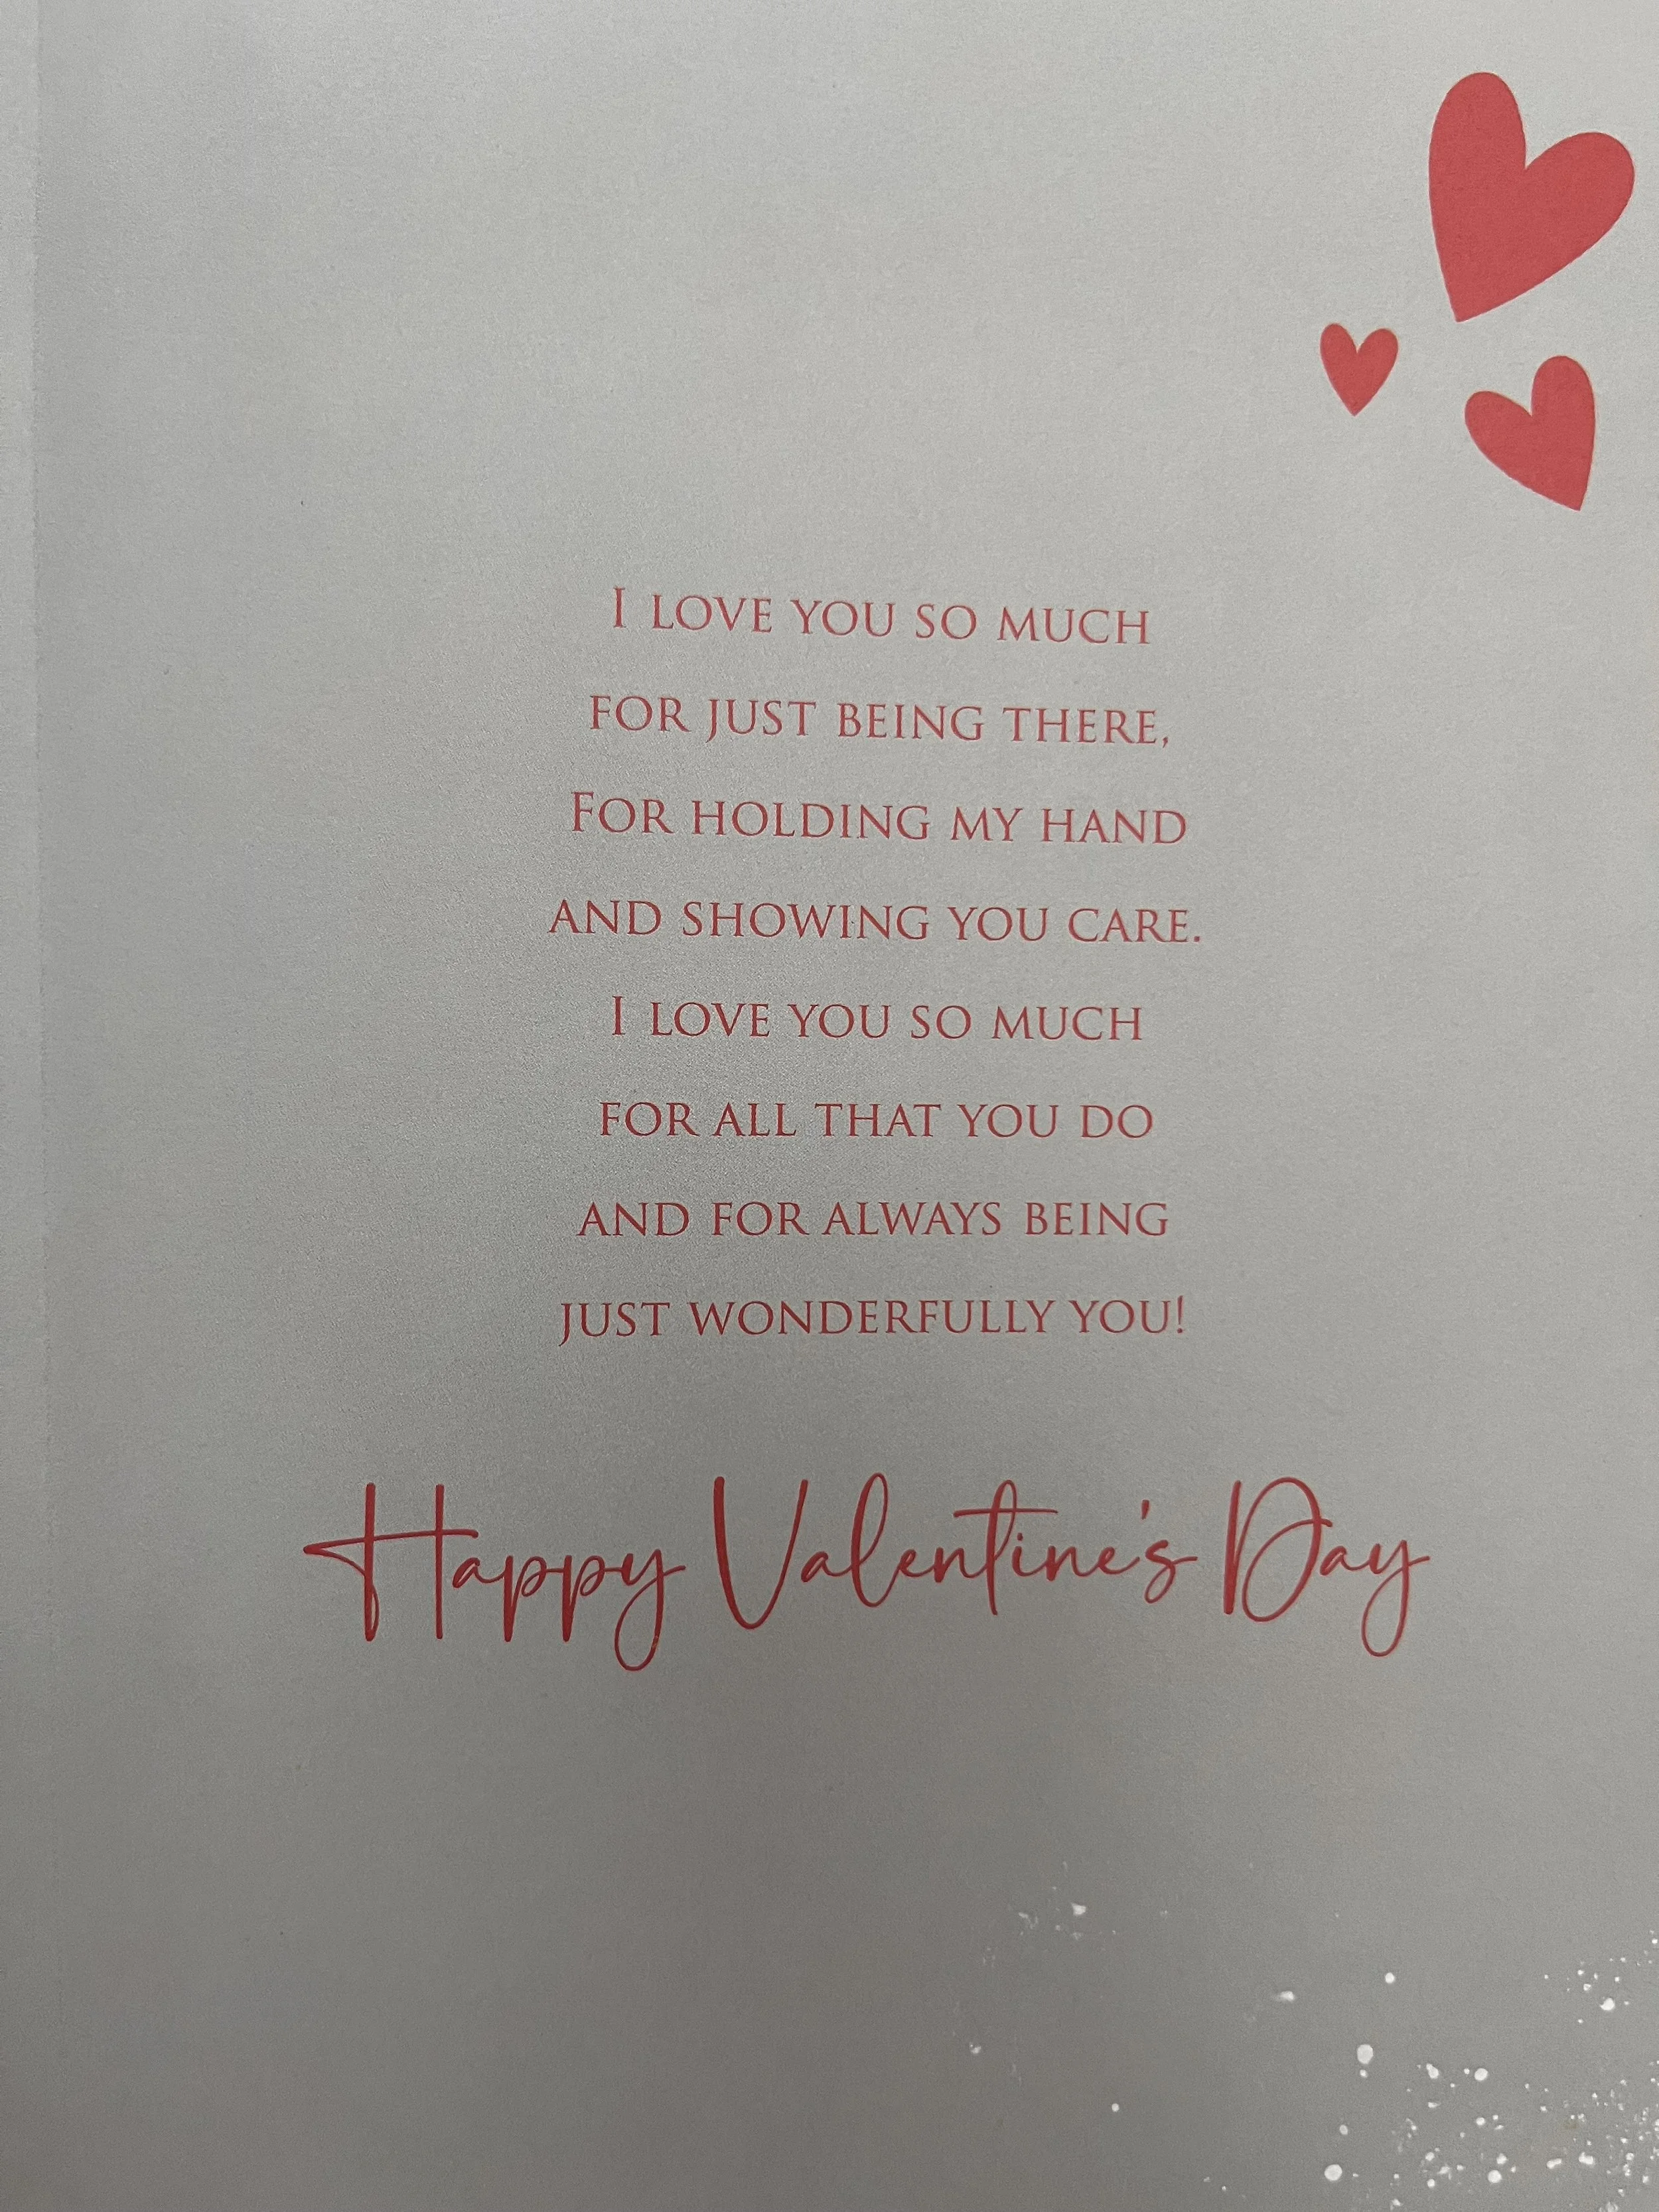 I LOVE YOU SO MUCH
FOR JUST BEING THERE,
FOR HOLDING MY HAND
AND SHOWING YOU CARE.
I LOVE YOU SO MUCH
FOR ALL THAT YOU DO
AND FOR ALWAYS BEING
JUST WONDERFULLY YOU!
Happy Valentine's Day